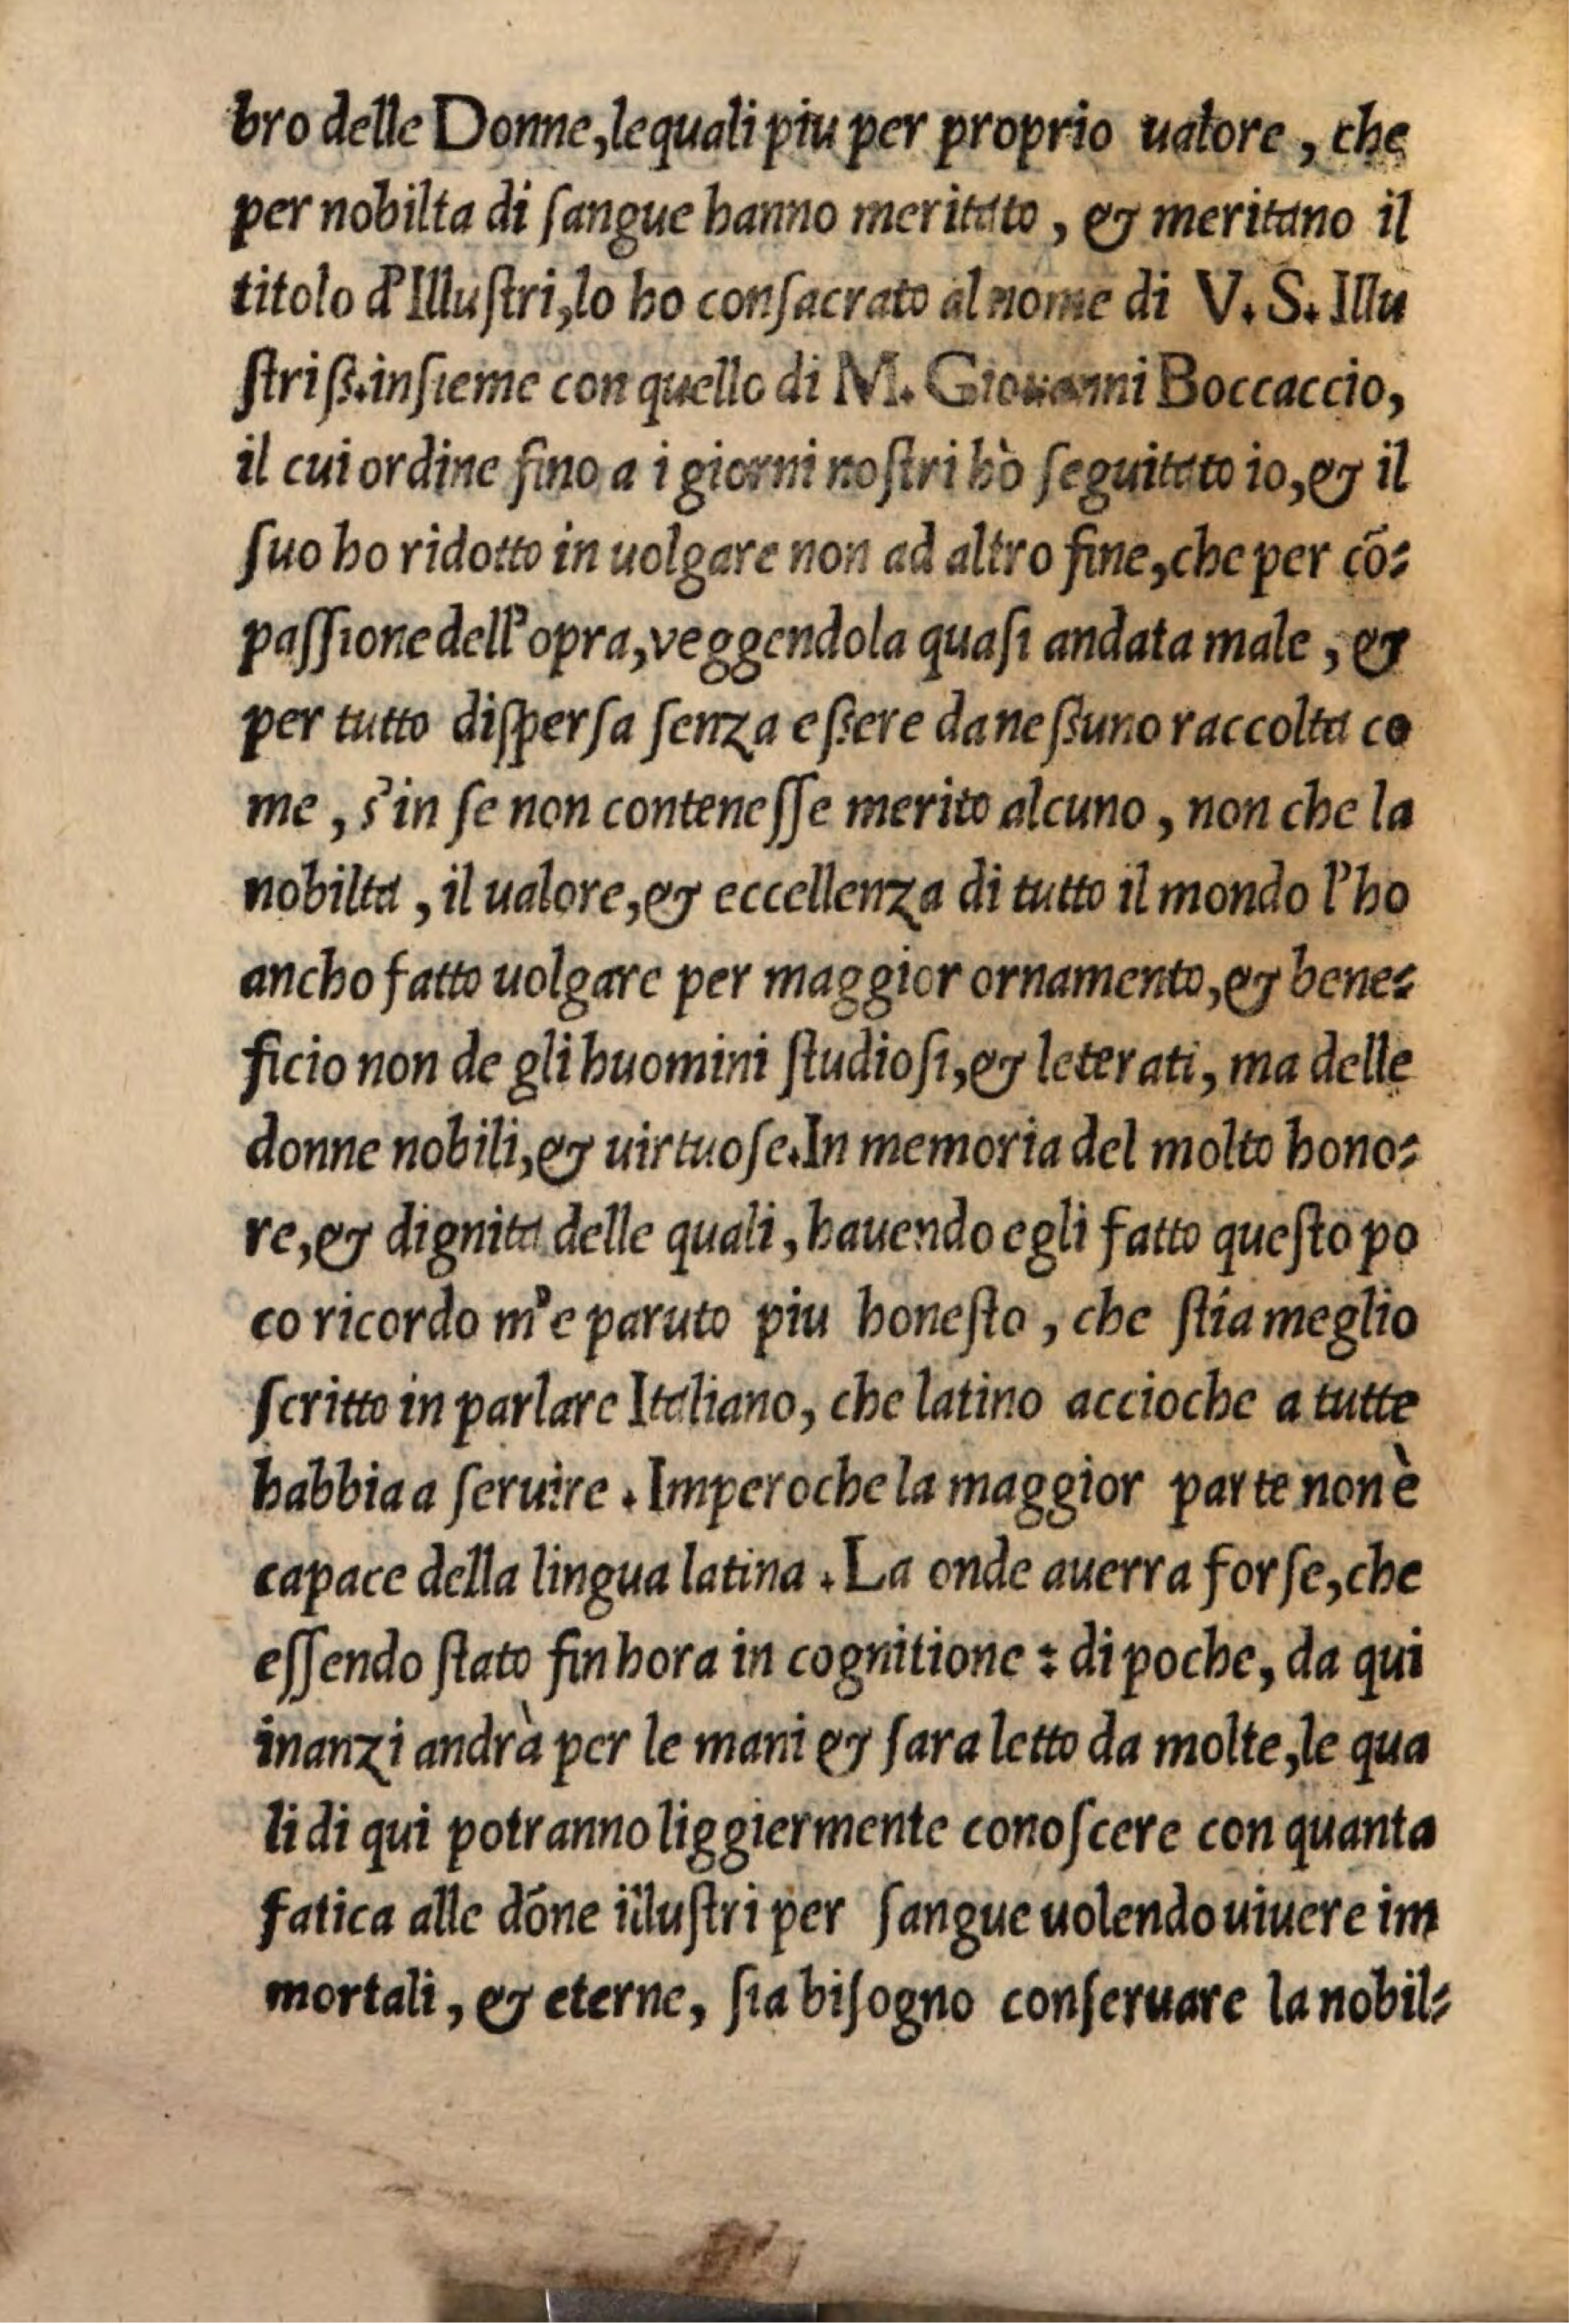 bro delle Donne,lequali piu per proprio ualore , che
per nobilta di ſangue hanno meritato , & meritano il
titolo d'Illuſtri,lo ho conſacrato al nome di V. S. Illu
ſtriß.inſieme con quello di M. Giouanni Boccaccio,
il cui ordine fino a i giorni noſtri hò ſeguitato io,& il
ſuo ho ridotto in uolgare non ad altro fine,che per cō-
paſſione dell'opra,veggendola quaſi andata male , &
per tutto diſperſa ſenza eßere da neßuno raccolta co
me , s'in ſe non conteneſſe merito alcuno , non che la
nobilta , il ualore,& eccellenza di tutto il mondo l'ho
ancho fatto uolgare per maggior ornamento,& bene-
ficio non de gli huomini ſtudioſi,& leterati, ma delle
donne nobili,& uirtuoſe.In memoria del molto hono-
re,& dignita delle quali , hauendo egli fatto queſto po
co ricordo m'e paruto piu honeſto , che ſtia meglio
ſcritto in parlare Italiano, che latino accioche a tutte
habbia a ſeruire . Imperoche la maggior parte non è
capace della lingua latina . La onde auerra forſe,che
eſſendo ſtato fin hora in cognitione : di poche, da qui
inanzi andrà per le mani & ſara letto da molte,le qua
li di qui potranno liggiermente conoſcere con quanta
fatica alle dōne illuſtri per ſangue uolendo uiuere im
mortali , & eterne, ſia biſogno conſeruare la nobil-